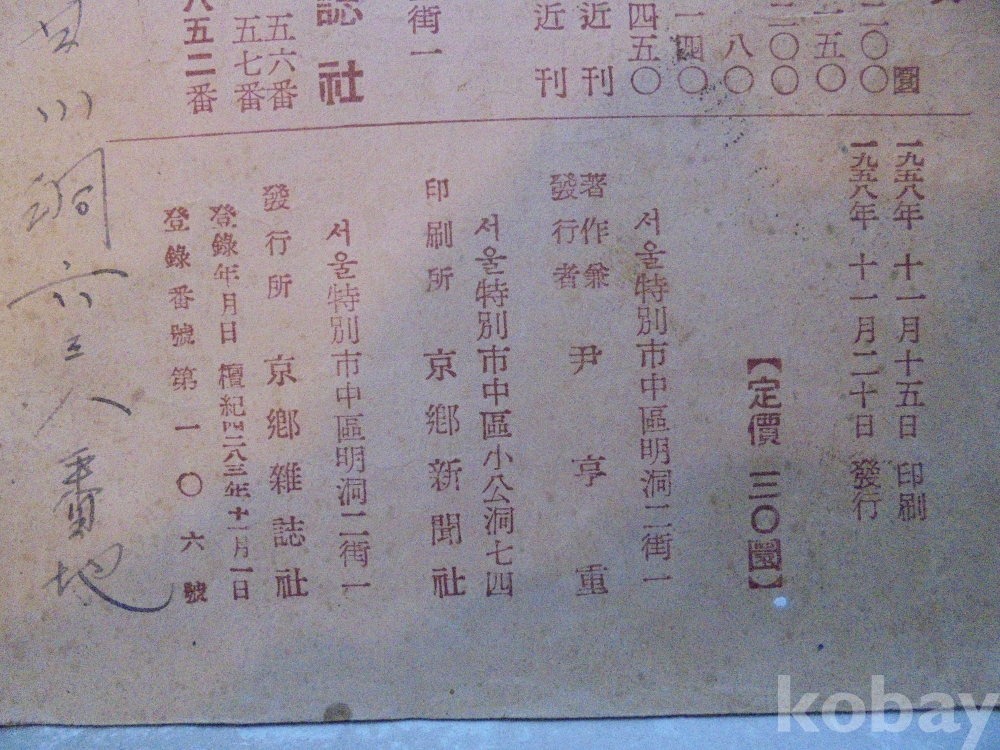 二〇〇圜
五〇
二〇〇
八〇
一四〇
四五〇
近刊
近刊
街一
誌社
五六番
五七番
八五二番
一九五八年 十一月十五日 印刷
一九五八年 十一月二十日 發行
【定價 三〇圜】
서울特別市中區明洞二街一
著作兼
發行者 尹亨重
서울特別市中區小公洞七四
印刷所 京鄕新聞社
서울特別市中區明洞二街一
發行所 京鄕雜誌社
登錄年月日 檀紀四二八三年十一月一日
登錄番號第一〇六號
川洞六三八番地
kobay